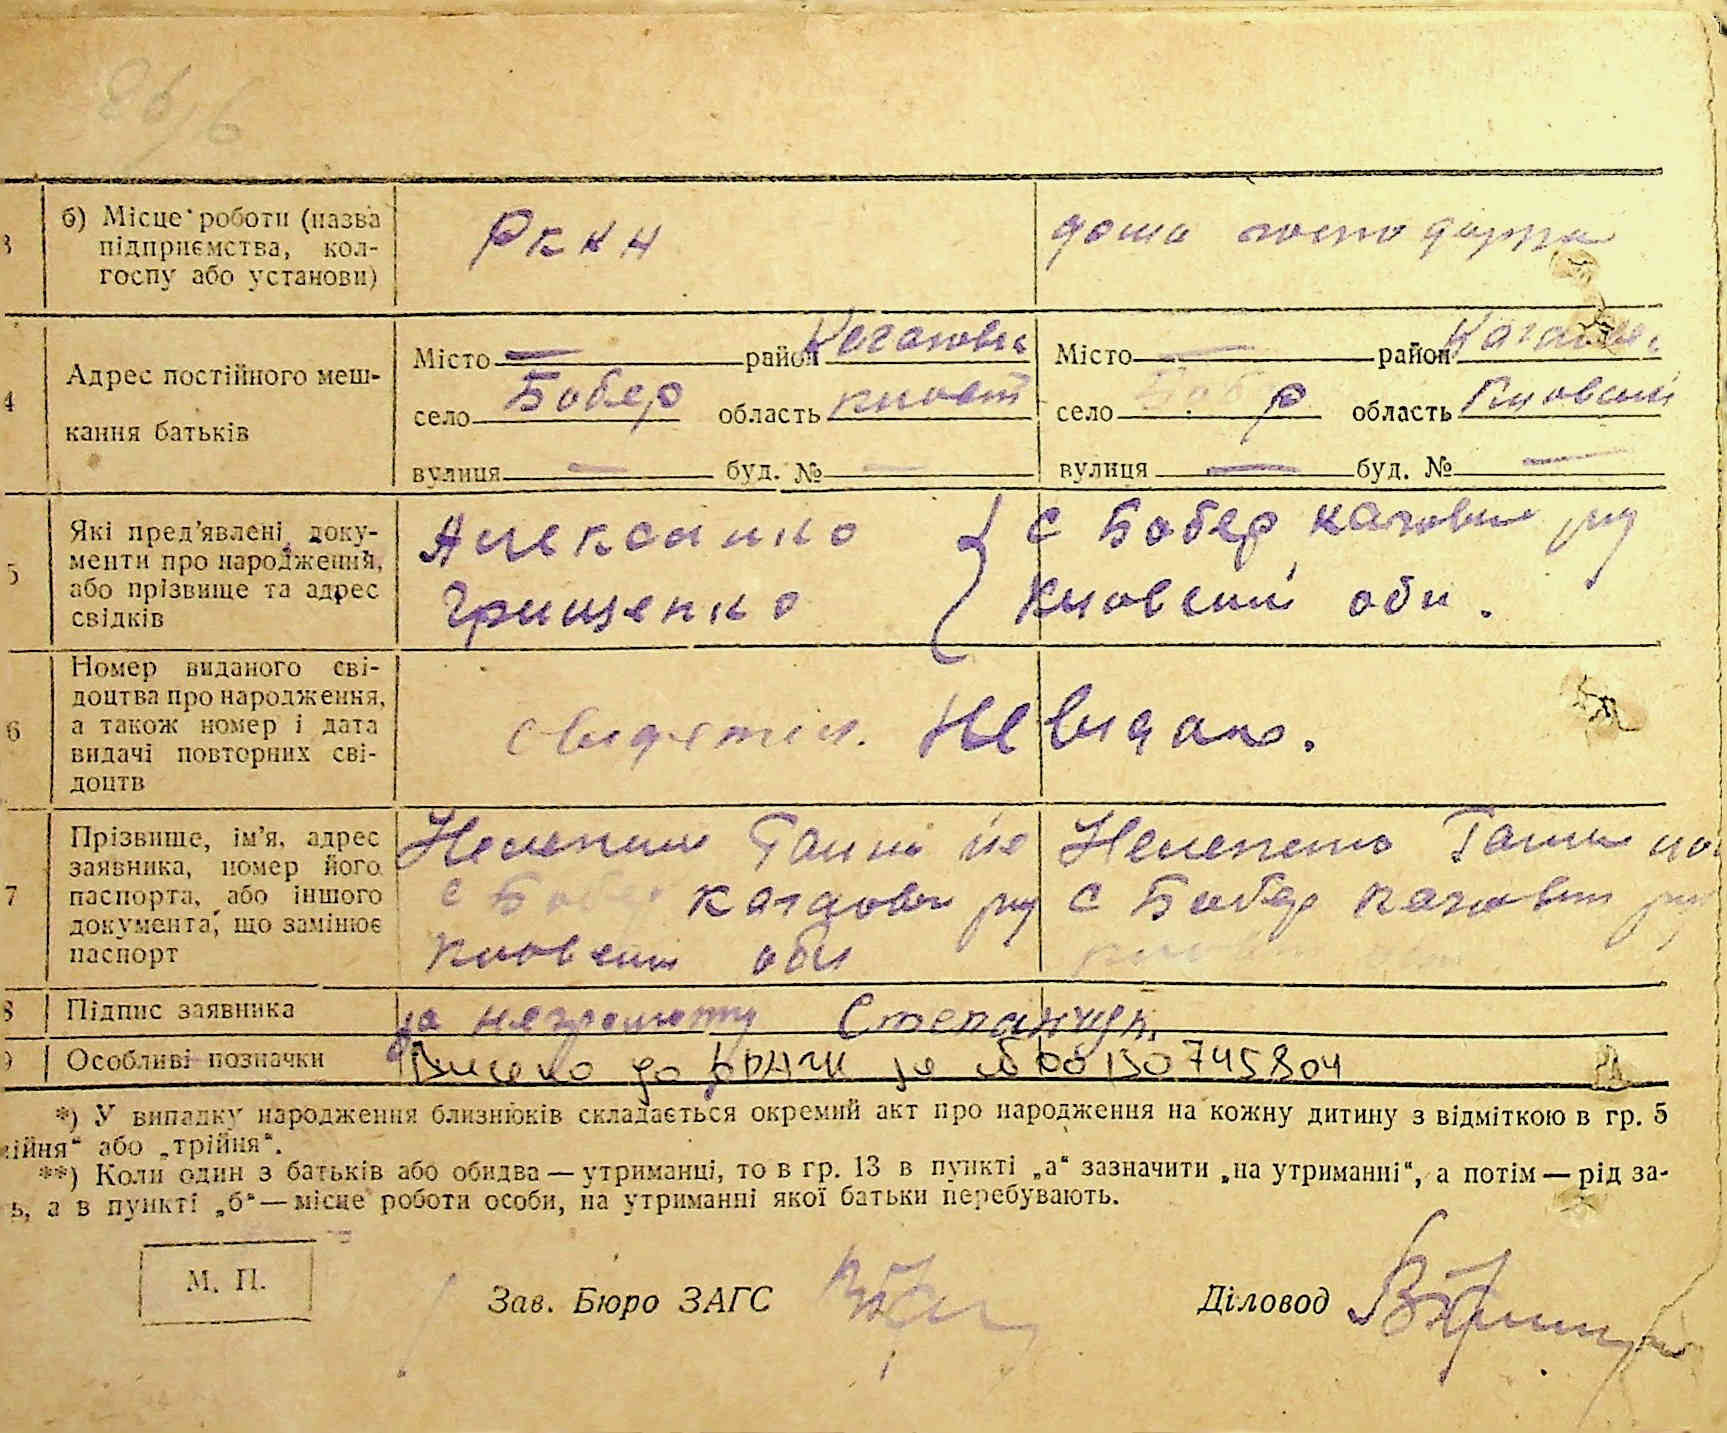 3 б) Місце роботи (назва
підприємства, кол-
госпу або установи)
РККН
дома господарка
4 Адрес постійного меш-
кання батьків
Місто — район Каганович
село Бобер область Київськ
вулиця — буд. № —
Місто — район
село Бобер область Київській
вулиця — буд. № —
5 Які пред'явлені доку-
менти про народження,
або прізвище та адрес
свідків
Алексаико
Грищенко
с Бобер ру
Київській обл.
6 Номер виданого сві-
доцтва про народження,
а також номер і дата
видачі повторних сві-
доцтв
свидетел. Не видано.
7 Прізвище, ім'я, адрес
заявника, номер його
паспорта, або іншого
документа, що замінює
паспорт
Ганна
с Бобер
обл
Ганна
с Бобер
8 Підпис заявника
за неграмотну Степанчук
9 Особливі позначки
Внесено до ДРАЦС за № 00130745804
*) У випадку народження близнюків складається окремий акт про народження на кожну дитину з відміткою в гр. 5
ійня“ або „трійня“.
**) Коли один з батьків або обидва — утриманці, то в гр. 13 в пункті „а“ зазначити „на утриманні“, а потім — рід за-
ь, а в пункті „б“ — місце роботи особи, на утриманні якої батьки перебувають.
М. П.
Зав. Бюро ЗАГС
Діловод